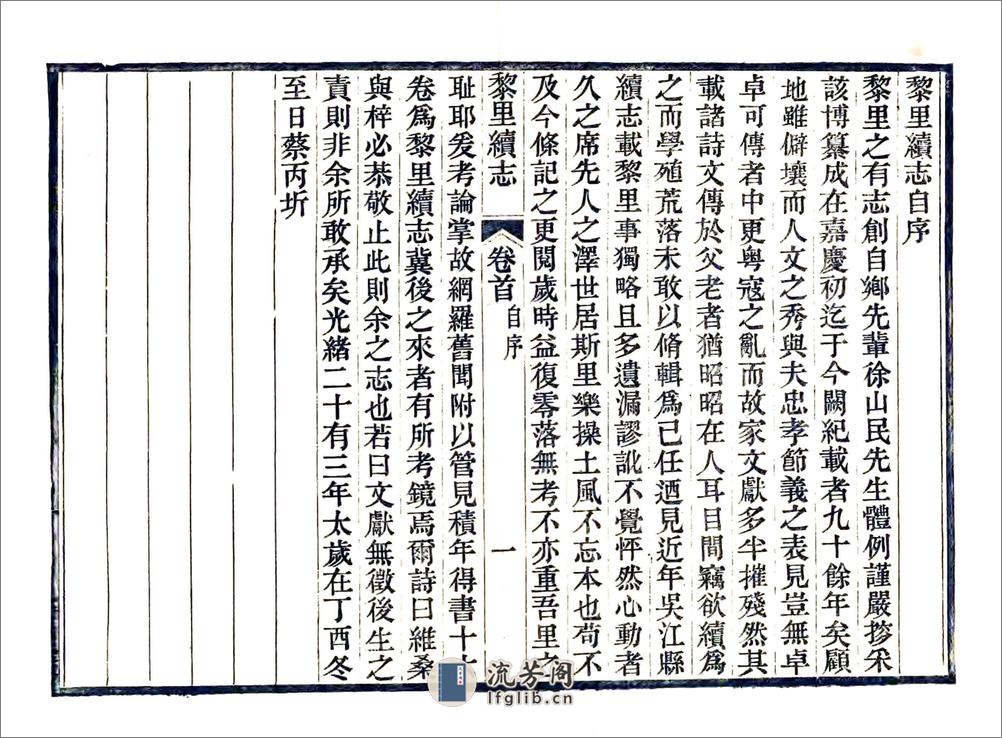 黎里續志自序
黎里之有志創自鄉先輩徐山民先生體例謹嚴摉采
該博纂成在嘉慶初迄于今闕紀載者九十餘年矣顧
地雖僻壤而人文之秀與夫忠孝節義之表見豈無卓
卓可傳者中更粵寇之亂而故家文獻多半摧殘然其
載諸詩文傳於父老者猶昭昭在人耳目間竊欲續爲
之而學殖荒落未敢以脩輯爲己任迺見近年吳江縣
續志載黎里事獨略且多遺漏謬訛不覺怦然心動者
久之席先人之澤世居斯里樂操土風不忘本也苟不
及今條記之更閱歲時益復零落無考不亦重吾里之
黎里續志 卷首 自序 一
耻耶爰考論掌故網羅舊聞附以管見積年得書十六
卷爲黎里續志冀後之來者有所考鏡焉爾詩曰維桑
與梓必恭敬止此則余之志也若曰文獻無徵後生之
責則非余所敢承矣光緒二十有三年太歲在丁酉冬
至日蔡丙圻
流芳阁
lfglib.cn